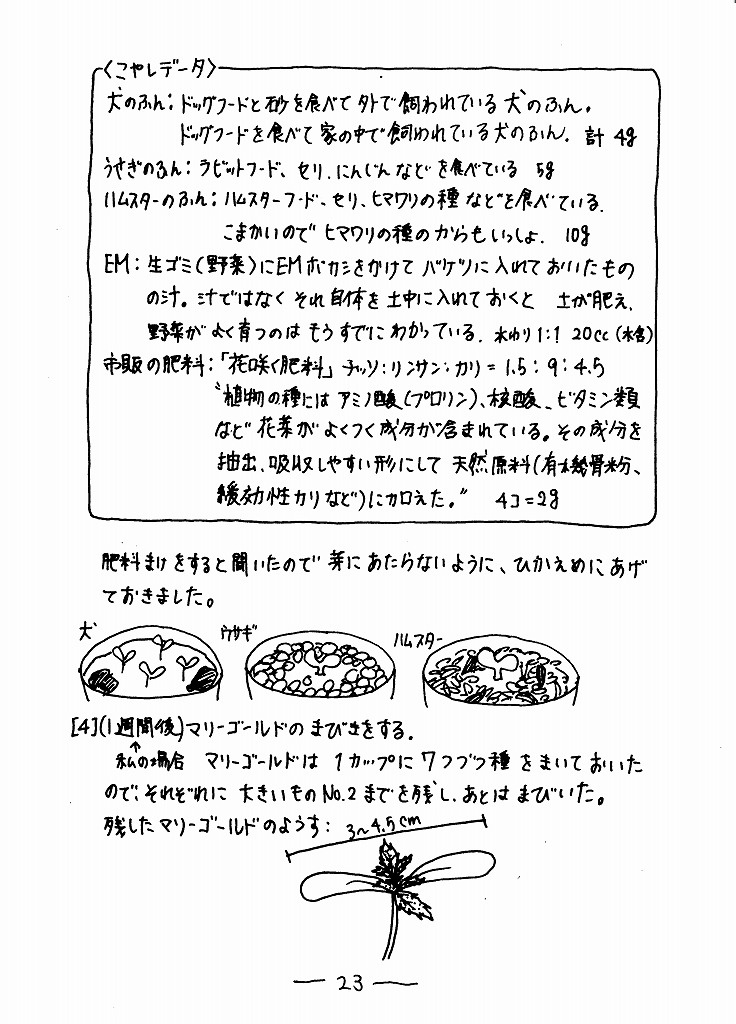 〈こやしデータ〉
犬のふん：ドッグフードと砂を食べて外で飼われている犬のふん。
ドッグフードを食べて家の中で飼われている犬のふん. 計 4g
うさぎのふん：ラビットフード、セリ、にんじんなどを食べている 5g
ハムスターのふん：ハムスターフード、セリ、ヒマワリの種などを食べている.
こまかいのでヒマワリの種のからもいっしょ. 10g
EM：生ゴミ(野菜)にEMボカシをかけてバケツに入れておいたもの
の汁。汁ではなくそれ自体を土中に入れておくと 土が肥え、
野菜がよく育つのはもうすでにわかっている. 水わり1:1 20cc(水含)
市販の肥料：「花咲く肥料」チッソ:リンサン:カリ=1.5:9:4.5
"植物の種にはアミノ酸(プロリン)、核酸、ビタミン類
など花菜がよくつく成分が含まれている。その成分を
抽出、吸収しやすい形にして天然原料(有機骨粉、
緩効性カリなど)に加えた。" 4コ=2g
肥料まけをすると聞いたので芽にあたらないように、ひかえめにあげ
ておきました。
犬 ウサギ ハムスター
[4](1週間後)マリーゴールドのまびきをする.
私の場合 マリーゴールドは1カップに7つづつ種をまいておいた
ので、それぞれに大きいものNo.2までを残し、あとはまびいた。
残したマリーゴールドのようす： 3~4.5cm
— 23 —